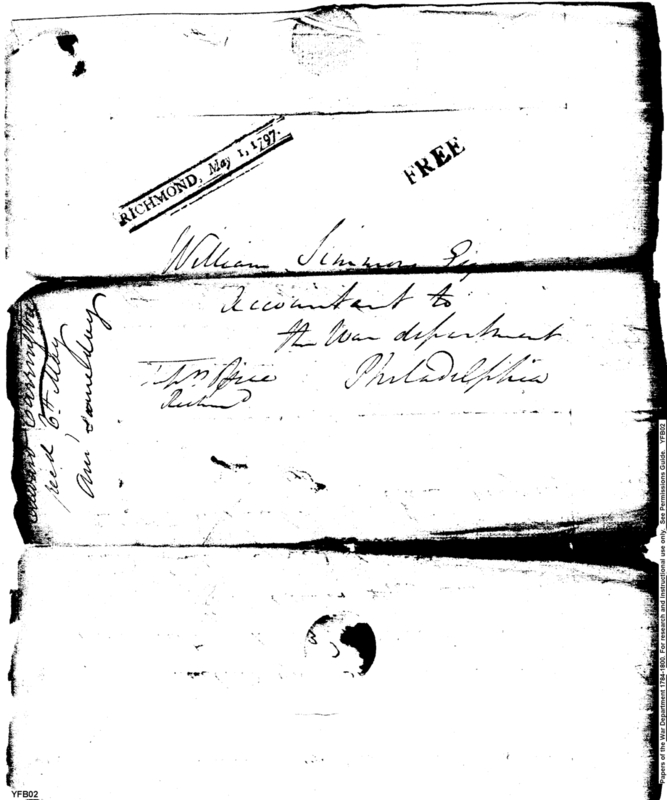 RICHMOND, May 1, 1797.
FREE
William Simmons Esq
Accountant to
the War department
Philadelphia
Richmd
Edward Carrington
recd 6th May
ansd same day
Papers of the War Department 1784-1800. For research and instructional use only. See Permissions Guide. YFB02
YFB02